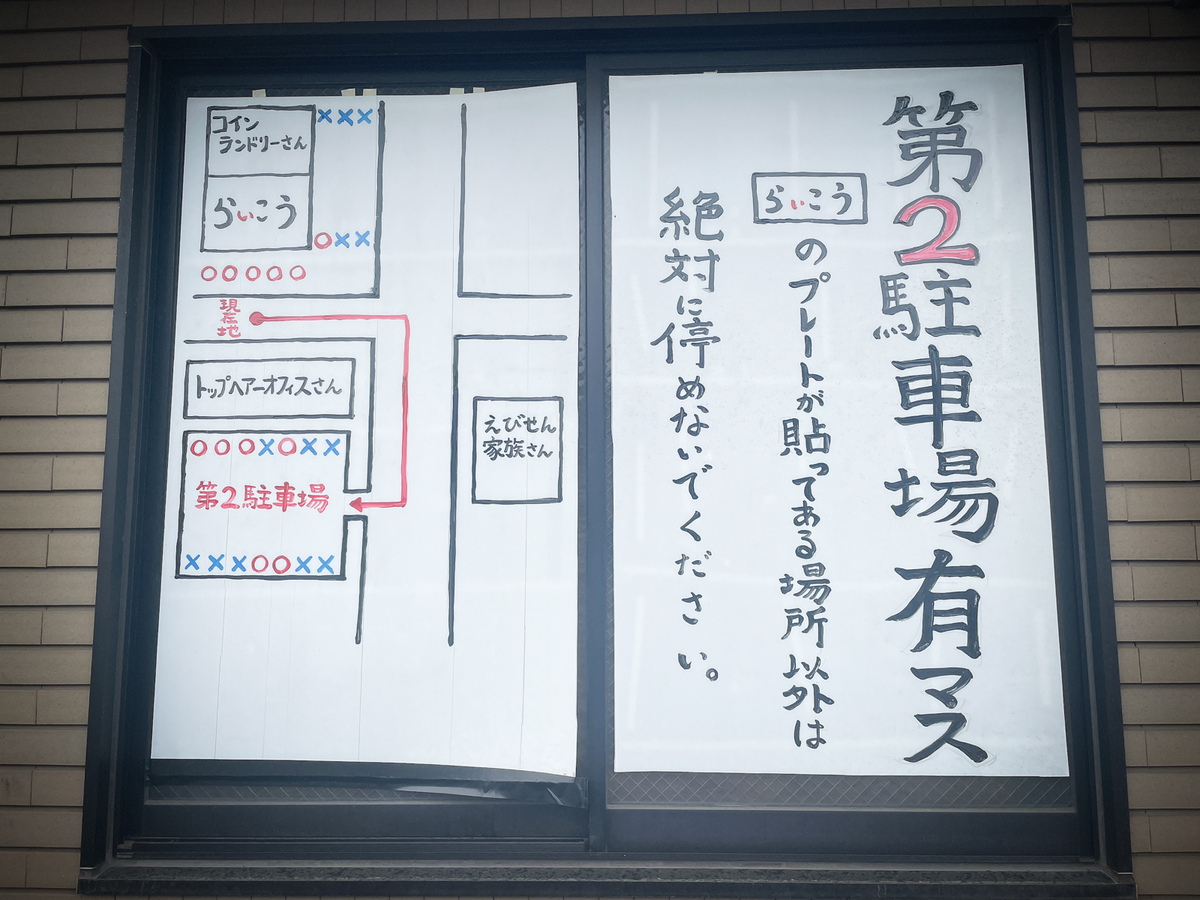 第2駐車場有マス
らいこう
のプレートが貼ってある場所以外は
絶対に停めないでください。
コイン
ランドリーさん
×××
らいこう
○××
○○○○○
現在地
トップヘアーオフィスさん
えびせん
家族さん
○○○×○××
第2駐車場
×××○○××